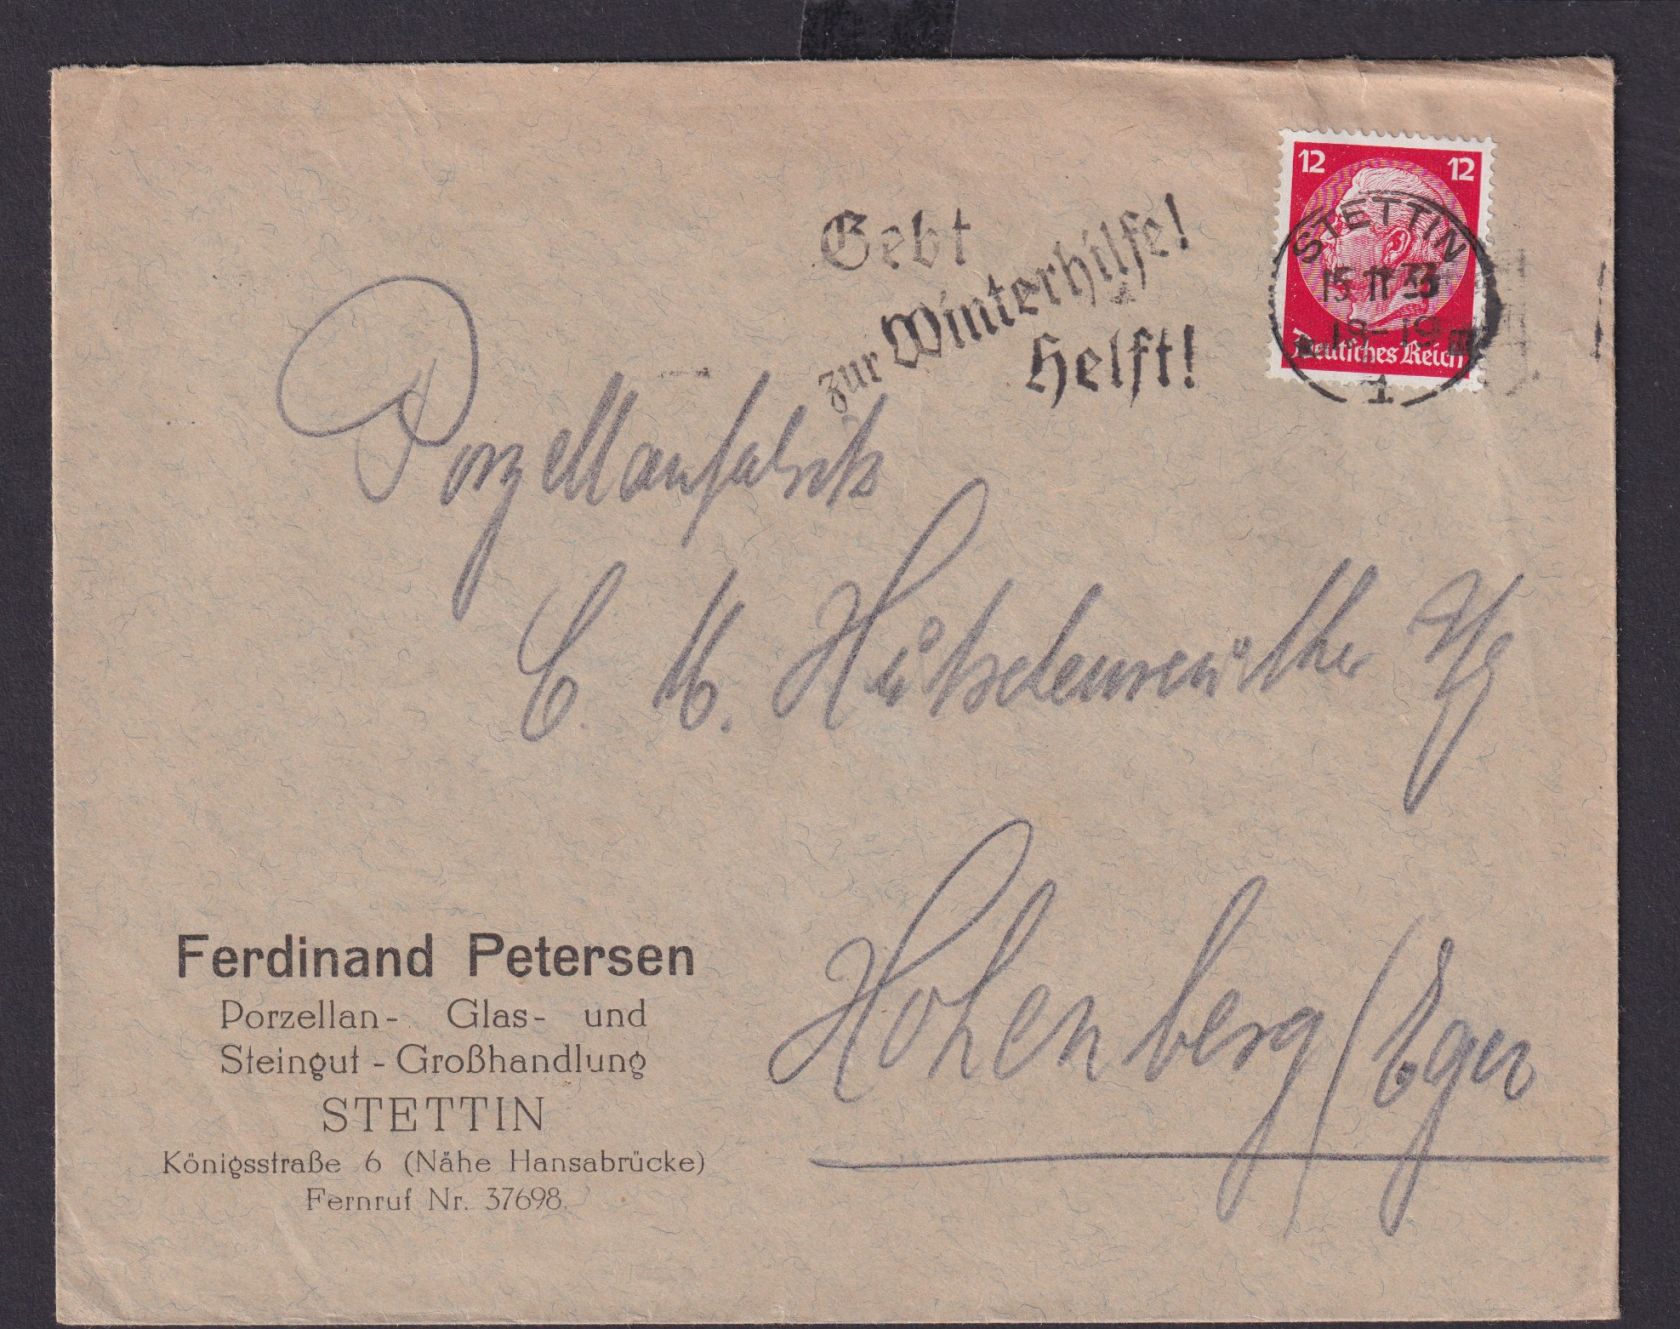 12 12
STETTIN
15 11 33
18-19
1
Deutsches Reich
Gebt
zur Winterhilfe!
Helft!
Porzellanfabrik
C. M. Hutschenreuther A/G
Hohenberg / Eger
Ferdinand Petersen
Porzellan- Glas- und
Steingut - Großhandlung
STETTIN
Königsstraße 6 (Nähe Hansabrücke)
Fernruf Nr. 37698.